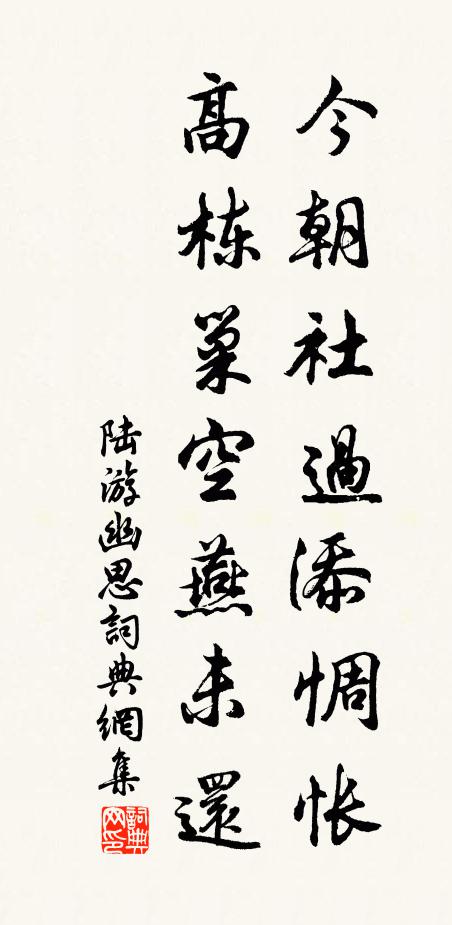 今朝社過添惆悵
高棟巢空燕未還
陆游幽思詞典網集
詞典网印